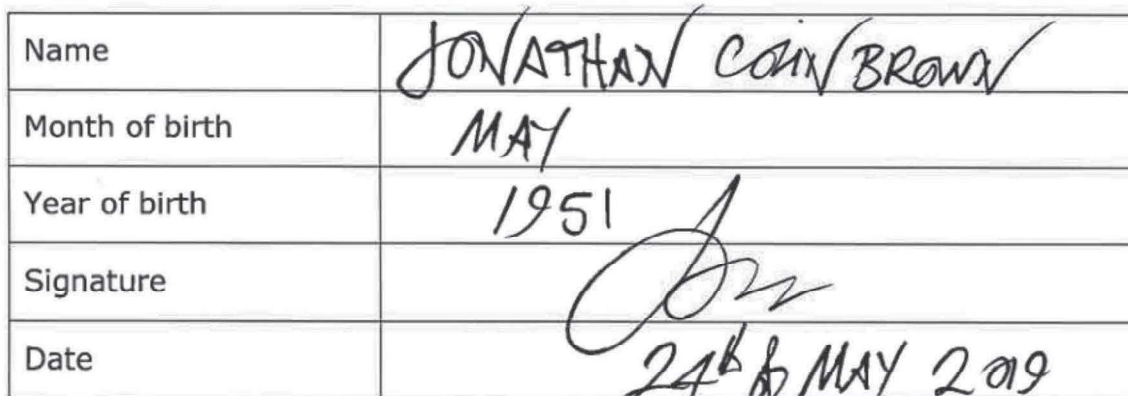 Name JONATHAN COLIN BROWN
Month of birth MAY
Year of birth 1951
Signature
Date 24th of MAY 2019